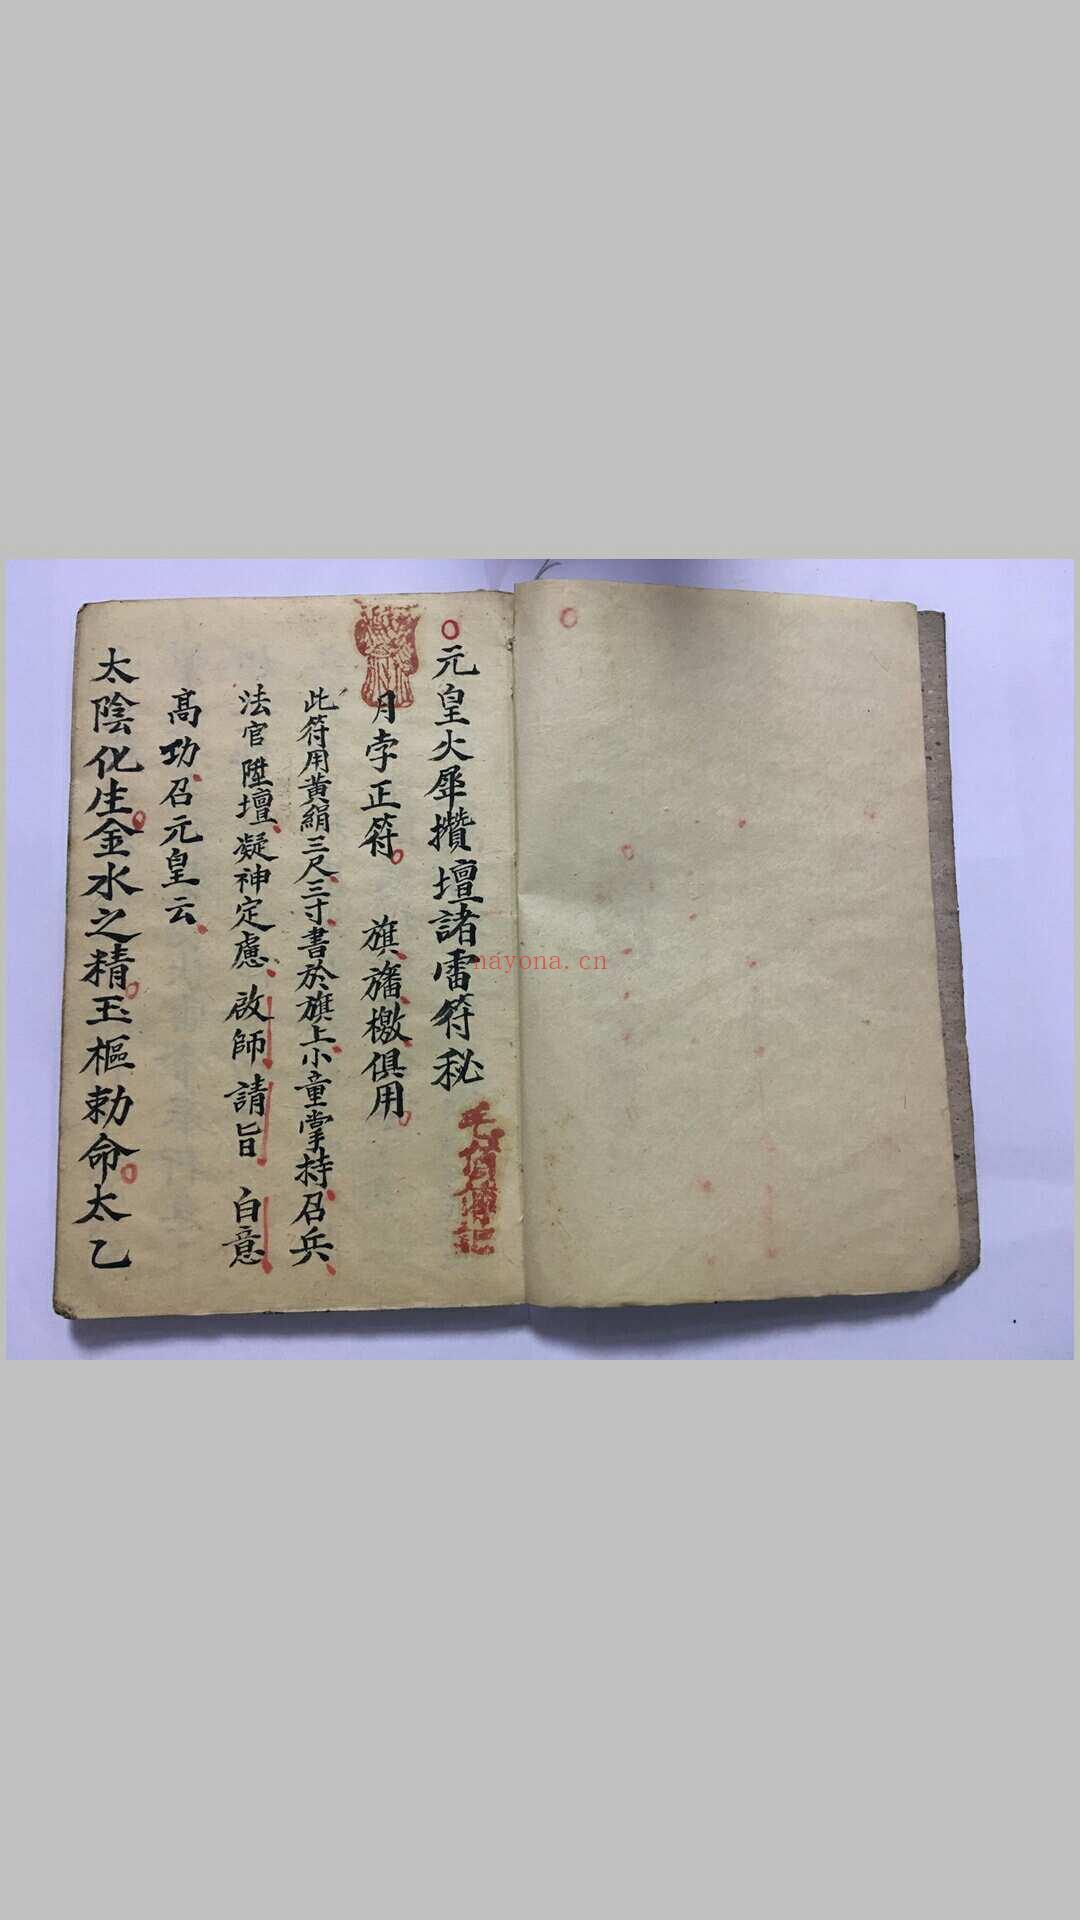 元皇火犀攢壇諸雷符秘
月孛正符 旗旛檄俱用
此符用黃絹三尺三寸書於旗上小童掌持召兵
法官陞壇凝神定慮 啟師 請旨 白意
高功召元皇云
太陰化生金水之精玉樞勅命太乙
nayona.cn